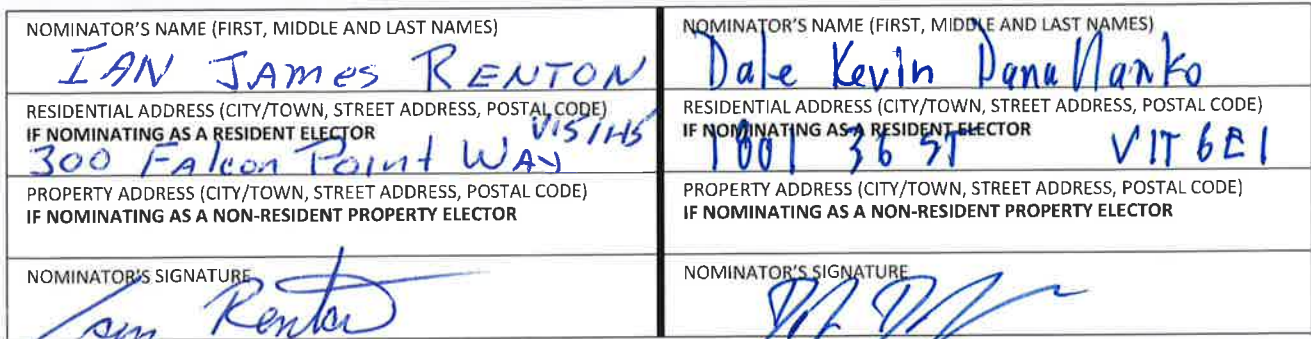 NOMINATOR'S NAME (FIRST, MIDDLE AND LAST NAMES)
IAN JAMES RENTON
RESIDENTIAL ADDRESS (CITY/TOWN, STREET ADDRESS, POSTAL CODE)
IF NOMINATING AS A RESIDENT ELECTOR
300 FALCON POINT WAY
PROPERTY ADDRESS (CITY/TOWN, STREET ADDRESS, POSTAL CODE)
IF NOMINATING AS A NON-RESIDENT PROPERTY ELECTOR
NOMINATOR'S SIGNATURE
Ian Renton
NOMINATOR'S NAME (FIRST, MIDDLE AND LAST NAMES)
Dale Kevin
RESIDENTIAL ADDRESS (CITY/TOWN, STREET ADDRESS, POSTAL CODE)
IF NOMINATING AS A RESIDENT ELECTOR
1001 36 ST V1T 6E1
PROPERTY ADDRESS (CITY/TOWN, STREET ADDRESS, POSTAL CODE)
IF NOMINATING AS A NON-RESIDENT PROPERTY ELECTOR
NOMINATOR'S SIGNATURE